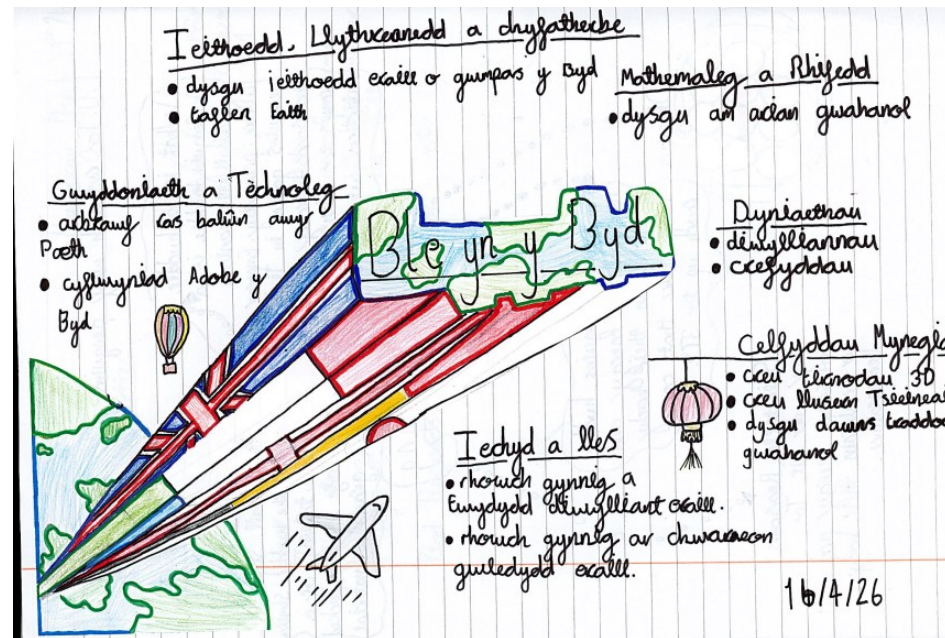 Ieithoedd, Llythrennedd a chyfathrebe
• dysgu ieithoedd eraill o gwmpas y Byd
• taflen Eaith
Mathemateg a Rhifedd
• dysgu am arian gwahanol
Gwyddoniaeth a Technoleg
• arbrawf ras balŵn awyr
Poeth
• cyflwyniad Adobe y
Byd
Ble yn y Byd
Dyniaethau
• diwylliannau
• crefyddau
Celfyddau Mynegia
• creu tirnodau 3D
• creu llusern Tsieineai
• dysgu dawns traddod
gwahanol
Iechyd a lles
• rhowch gynnig a
Ewydydd diwylliant eraill.
• rhowch gynnig ar chwaraeon
gwledydd eraill.
16/4/26